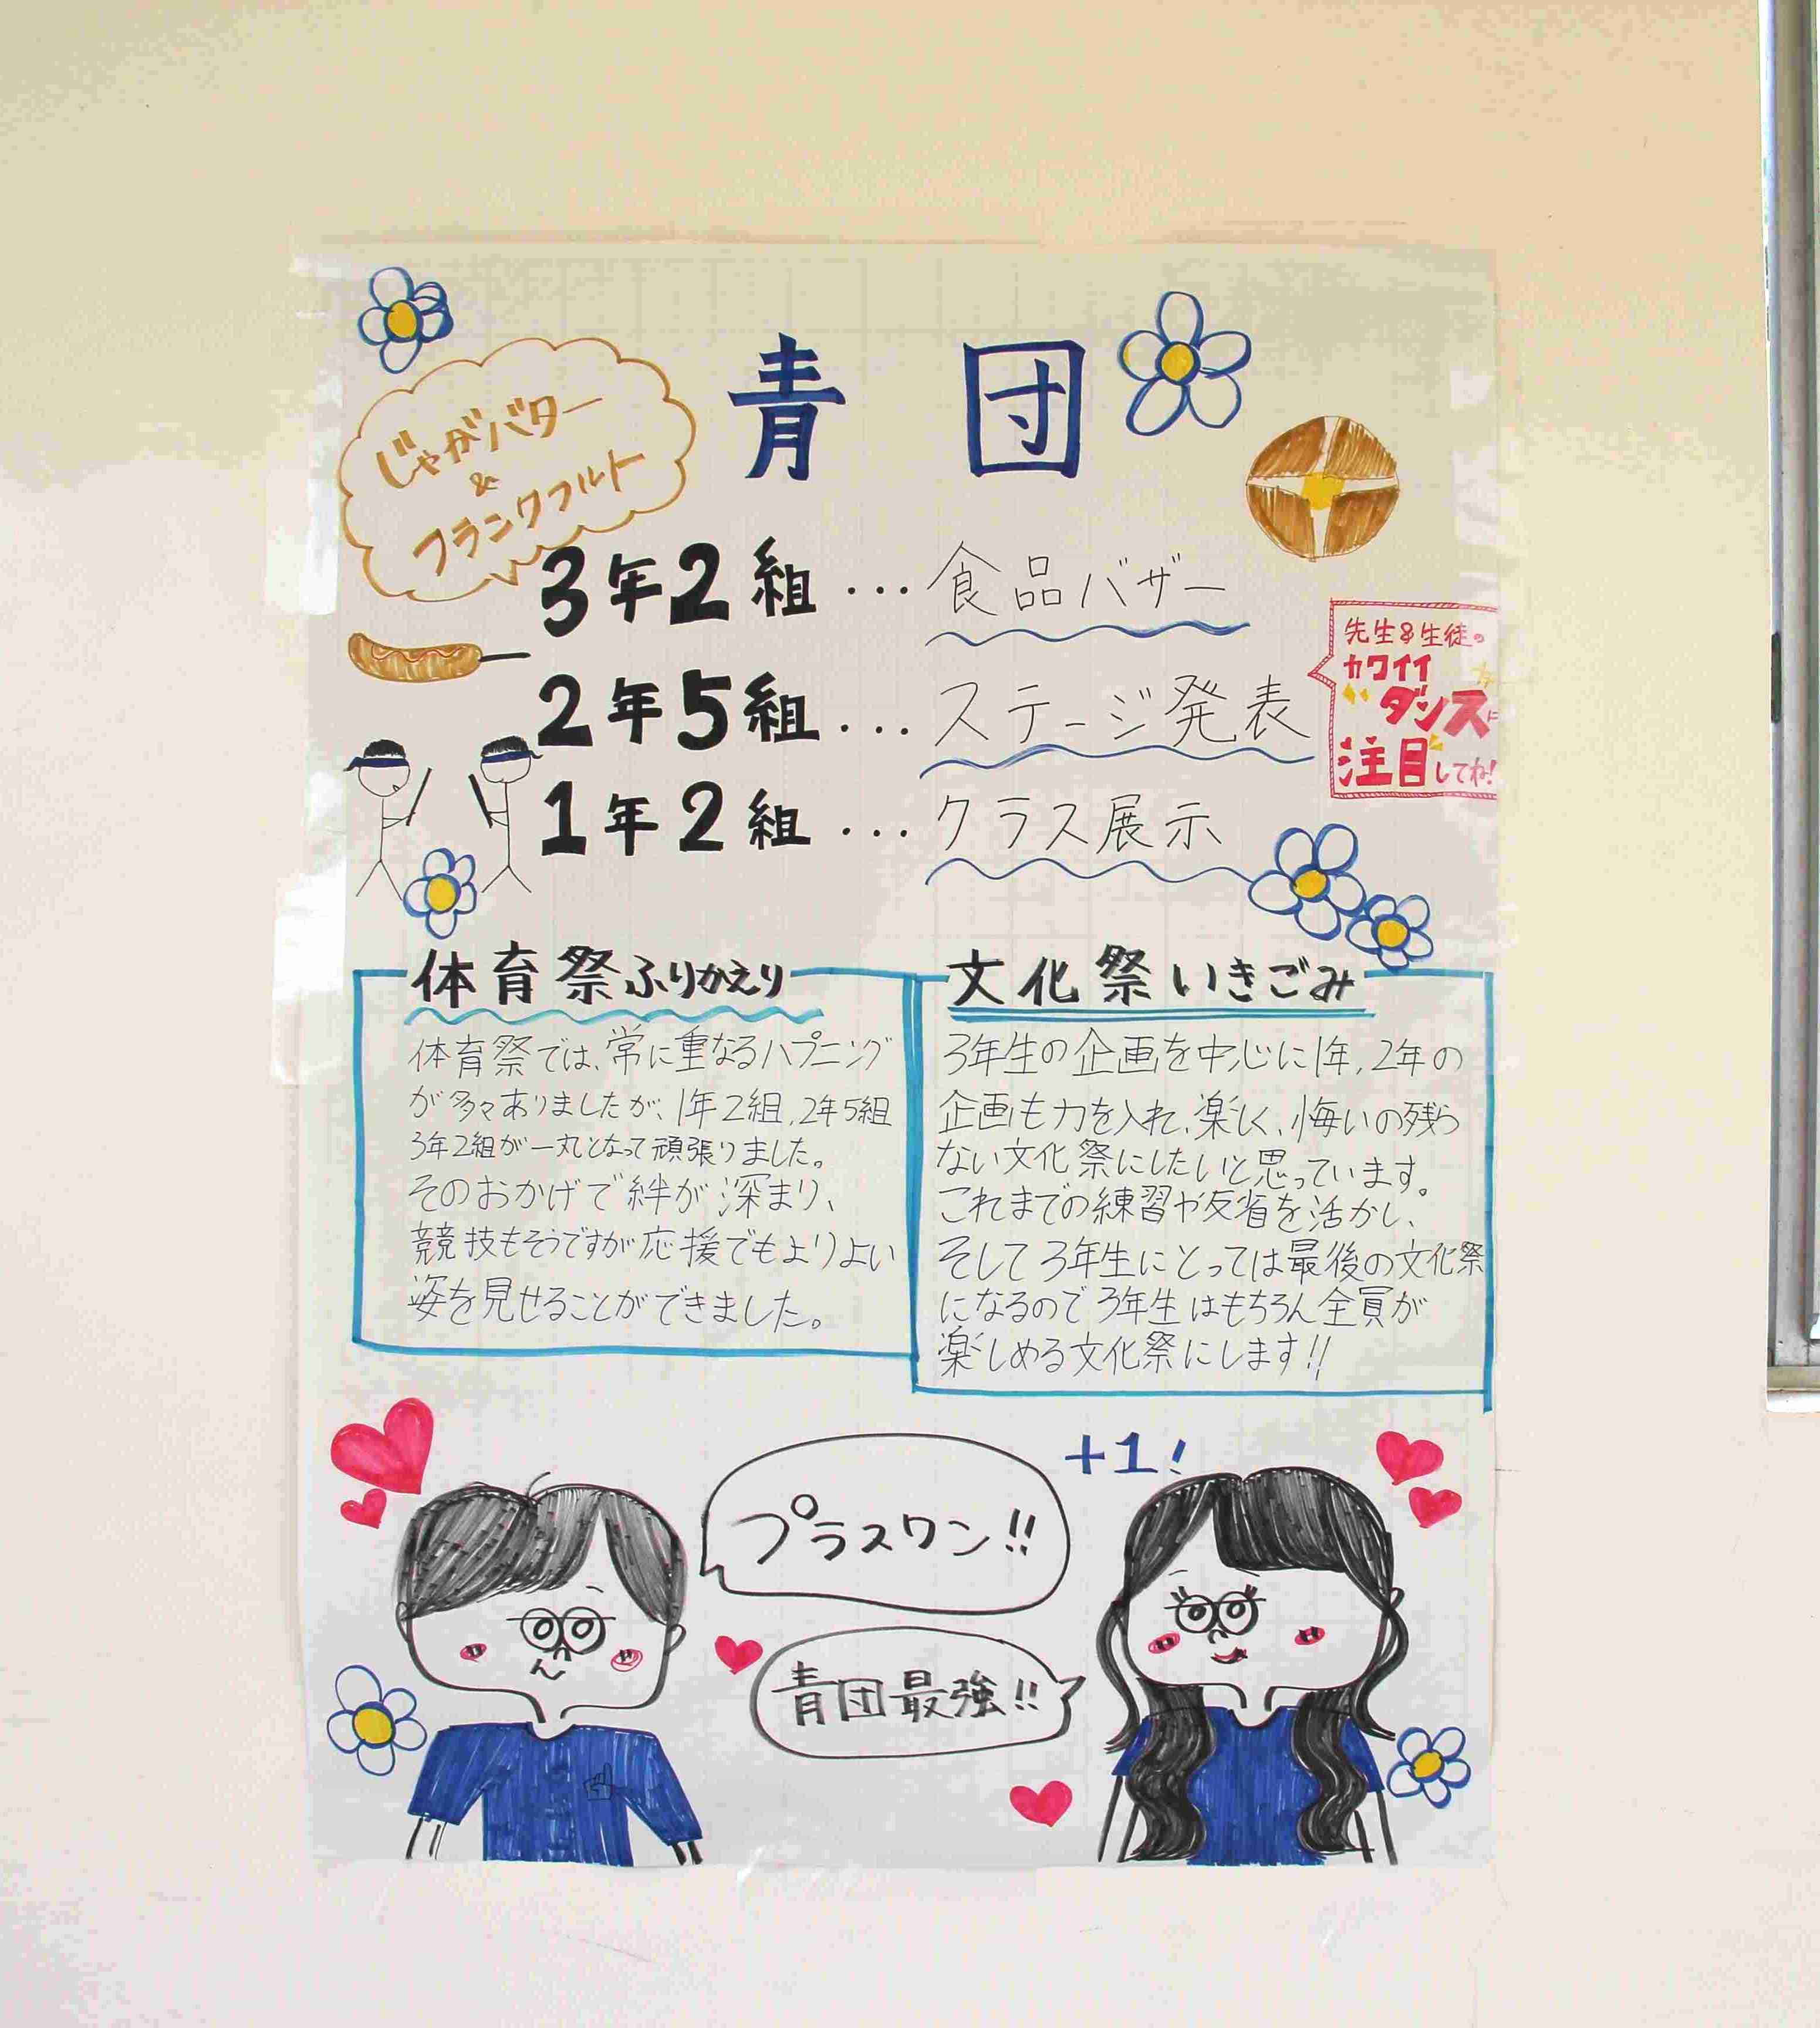 青団
じゃがバター
&
フランクフルト
3年2組…食品バザー
2年5組…ステージ発表
1年2組…クラス展示
先生&生徒の
カワイイ
ダンスに
注目してね!
体育祭ふりかえり
体育祭では、常に重なるハプニング
が多々ありましたが、1年2組,2年5組
3年2組が一丸となって頑張りました。
そのおかげで絆が深まり、
競技もそうですが応援でもよりよい
姿を見せることができました。
文化祭いきごみ
3年生の企画を中心に1年,2年の
企画も力を入れ、楽しく、悔いの残ら
ない文化祭にしたいと思っています。
これまでの練習や反省を活かし、
そして3年生にとっては最後の文化祭
になるので3年生はもちろん全員が
楽しめる文化祭にします!!
+1!
プラスワン!!
青団最強!!